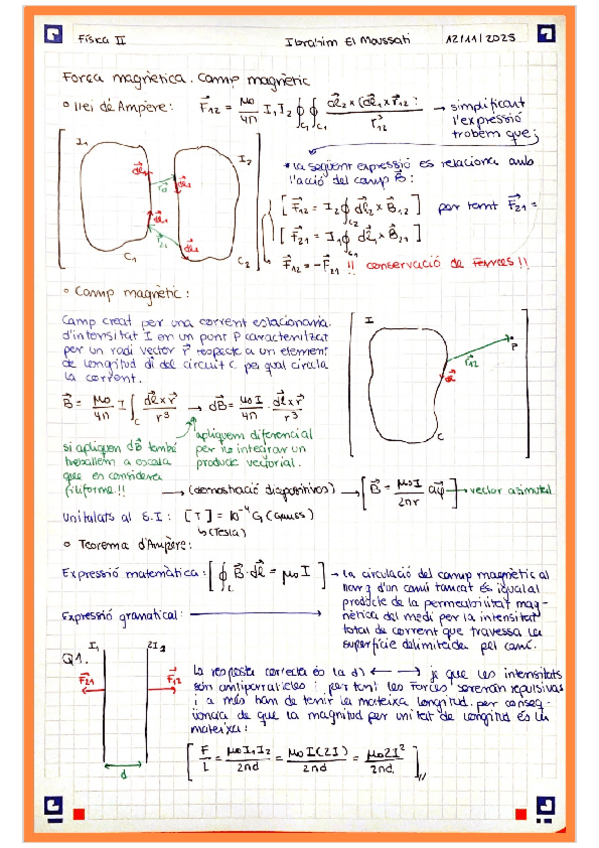 Física II
Ibrahim El Moussati
12/11/2025
Força magnètica. Camp magnètic
° Llei de Ampère: F₁₂ = μ₀/4π I₁I₂ ∮c₂ ∮c₁ dl₂ × (dl₁ × r₁₂) / r³₁₂ → simplificant
l'expressió
trobem que;
I₁
I₂
dl₁
r₁₂
dl₂
C₁
C₂
* la següent expressió es relaciona amb
l'acció del camp B:
[F₁₂ = I₂ ∮c₂ dl₂ × B₁₂] per tant F₂₁ =
[F₂₁ = I₁ ∮c₁ dl₁ × B₂₁]
F₁₂ = -F₂₁ !! conservació de Forces !!
° Camp magnètic:
Camp creat per una corrent estacionaria
d'intensitat I en un punt P caracteritzat
per un radi vector r respecte a un element
de longitud dl del circuit C pel qual circula
la corrent.
I
P
r₁₂
dl
C
B = μ₀/4π I ∫c dl × r / r³ → dB = μ₀I/4π · dl × r / r³
si apliquem dB també
treballem a escala
que es considera
filiforme!!
apliquem diferencial
per no integrar un
producte vectorial.
→ (demostració diapositives) → [B = μ₀I/2πr aφ] → vector azimutal
Unitats al S.I: [T] = 10⁻⁴ G (Gauss)
↳ (Tesla)
° Teorema d'Ampère:
Expressió matemàtica: [∮c B·dl = μ₀I] → La circulació del camp magnètic al
llarg d'un camí tancat és igual al
producte de la permeabilitat mag-
nètica del medi per la intensitat
total de corrent que travessa la
superfície delimitada pel camí.
Expressió gramatical: →
Q1.
I₁
2I₂
F₂₁
F₂₁
d
La resposta correcta és la d) ← → ja que les intensitats
són antiparal·leles i per tant les forces serenan repulsives
i a més han de tenir la mateixa longitud. per conseq-
üència de que la magnitud per unitat de longitud és la
mateixa:
[F/L = μ₀I₁I₂/2πd = μ₀I(2I)/2πd = μ₀2I²/2πd]